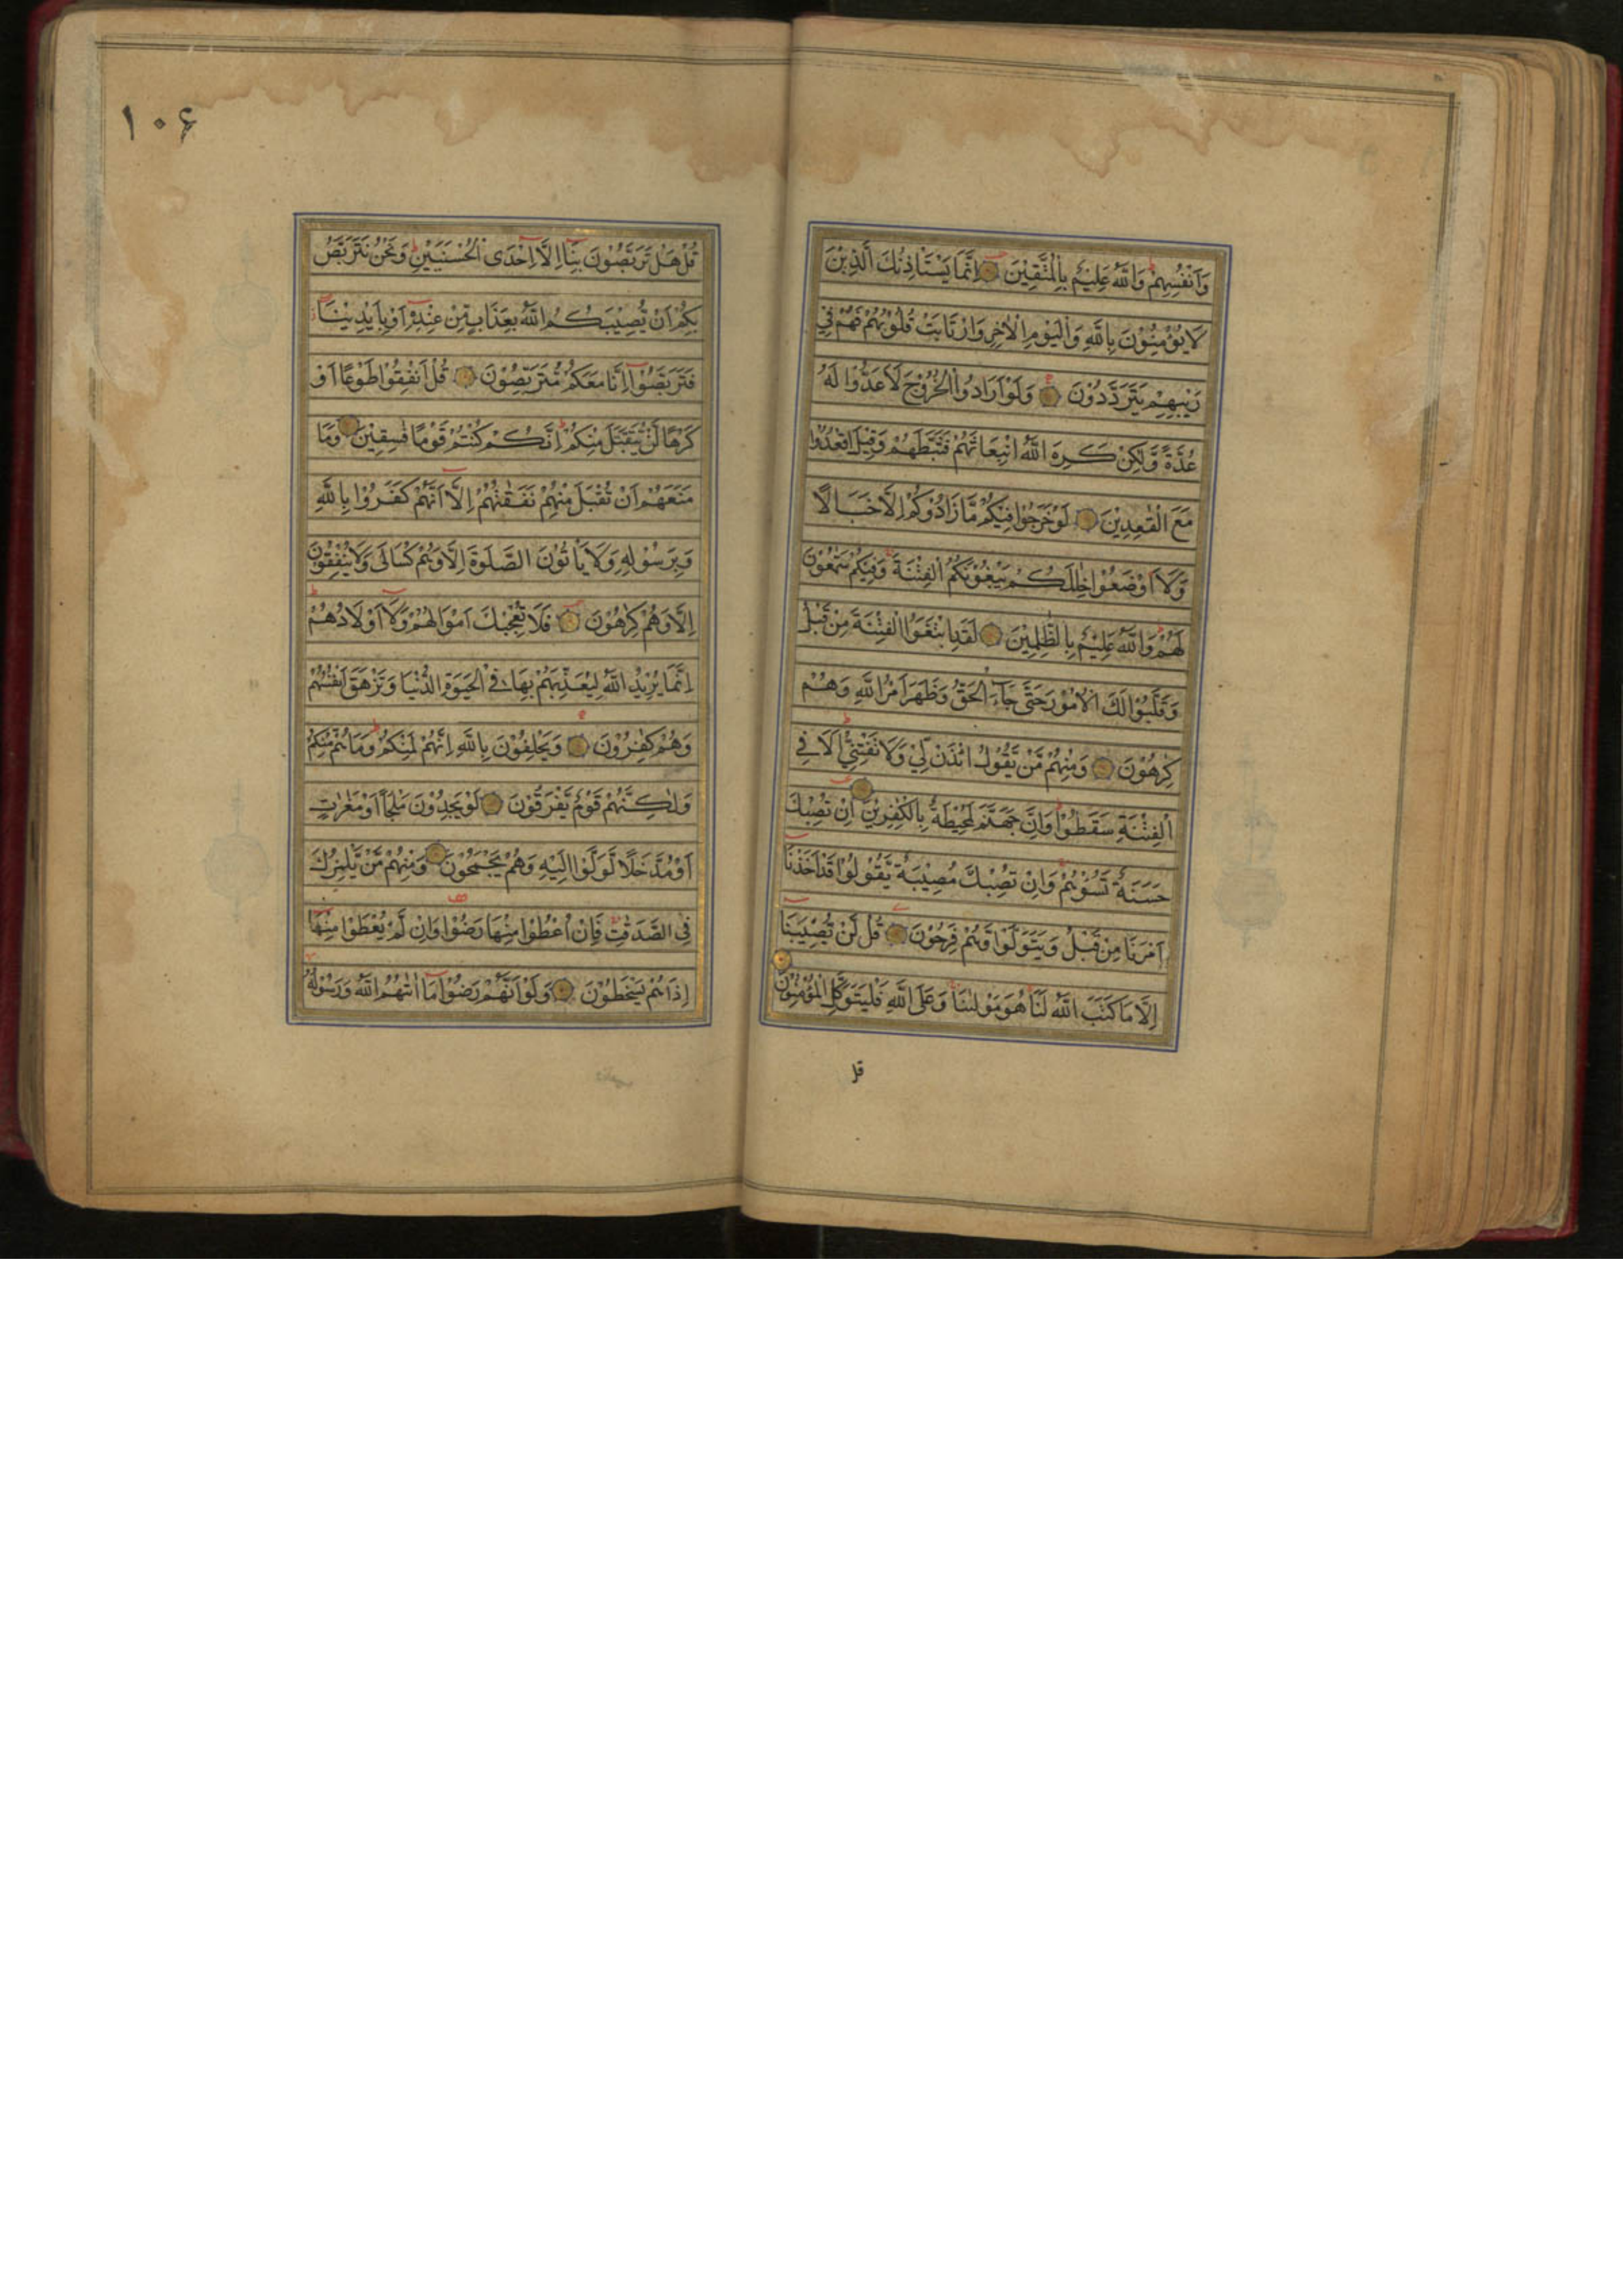 وَاَنْفُسِهِمْ وَاللّٰهُ عَلِيْمٌ بِالْمُتَّقِيْنَ اِنَّمَا يَسْتَاْذِنُكَ الَّذِيْنَ
لَا يُؤْمِنُوْنَ بِاللّٰهِ وَالْيَوْمِ الْاٰخِرِ وَارْتَابَتْ قُلُوْبُهُمْ فَهُمْ فِيْ
رَيْبِهِمْ يَتَرَدَّدُوْنَ وَلَوْ اَرَادُوا الْخُرُوْجَ لَاَعَدُّوْا لَهُ
عُدَّةً وَّلٰكِنْ كَرِهَ اللّٰهُ انْبِعَاثَهُمْ فَثَبَّطَهُمْ وَقِيْلَ اقْعُدُوْا
مَعَ الْقٰعِدِيْنَ لَوْ خَرَجُوْا فِيْكُمْ مَّا زَادُوْكُمْ اِلَّا خَبَالًا
وَّلَا۟اَوْضَعُوْا خِلٰلَكُمْ يَبْغُوْنَكُمُ الْفِتْنَةَ وَفِيْكُمْ سَمّٰعُوْنَ
لَهُمْ وَاللّٰهُ عَلِيْمٌ بِالظّٰلِمِيْنَ لَقَدِ ابْتَغَوُا الْفِتْنَةَ مِنْ قَبْلُ
وَقَلَّبُوْا لَكَ الْاُمُوْرَ حَتّٰى جَآءَ الْحَقُّ وَظَهَرَ اَمْرُ اللّٰهِ وَهُمْ
كٰرِهُوْنَ وَمِنْهُمْ مَّنْ يَّقُوْلُ ائْذَنْ لِّيْ وَلَا تَفْتِنِّيْ اَلَا فِي
الْفِتْنَةِ سَقَطُوْا وَاِنَّ جَهَنَّمَ لَمُحِيْطَةٌ بِالْكٰفِرِيْنَ اِنْ تُصِبْكَ
حَسَنَةٌ تَسُؤْهُمْ وَاِنْ تُصِبْكَ مُصِيْبَةٌ يَّقُوْلُوْا قَدْ اَخَذْنَا
اَمْرَنَا مِنْ قَبْلُ وَيَتَوَلَّوْا وَّهُمْ فَرِحُوْنَ قُلْ لَّنْ يُّصِيْبَنَا
اِلَّا مَا كَتَبَ اللّٰهُ لَنَا هُوَ مَوْلٰىنَا وَعَلَى اللّٰهِ فَلْيَتَوَكَّلِ الْمُؤْمِنُوْنَ
قل
١٠۶
قُلْ هَلْ تَرَبَّصُوْنَ بِنَا اِلَّا اِحْدَى الْحُسْنَيَيْنِ وَنَحْنُ نَتَرَبَّصُ
بِكُمْ اَنْ يُّصِيْبَكُمُ اللّٰهُ بِعَذَابٍ مِّنْ عِنْدِهٖ اَوْ بِاَيْدِيْنَا
فَتَرَبَّصُوْا اِنَّا مَعَكُمْ مُّتَرَبِّصُوْنَ قُلْ اَنْفِقُوْا طَوْعًا اَوْ
كَرْهًا لَّنْ يُّتَقَبَّلَ مِنْكُمْ اِنَّكُمْ كُنْتُمْ قَوْمًا فٰسِقِيْنَ وَمَا
مَنَعَهُمْ اَنْ تُقْبَلَ مِنْهُمْ نَفَقٰتُهُمْ اِلَّا اَنَّهُمْ كَفَرُوْا بِاللّٰهِ
وَبِرَسُوْلِهٖ وَلَا يَاْتُوْنَ الصَّلٰوةَ اِلَّا وَهُمْ كُسَالٰى وَلَا يُنْفِقُوْنَ
اِلَّا وَهُمْ كٰرِهُوْنَ فَلَا تُعْجِبْكَ اَمْوَالُهُمْ وَلَا اَوْلَادُهُمْ
اِنَّمَا يُرِيْدُ اللّٰهُ لِيُعَذِّبَهُمْ بِهَا فِي الْحَيٰوةِ الدُّنْيَا وَتَزْهَقَ اَنْفُسُهُمْ
وَهُمْ كٰفِرُوْنَ وَيَحْلِفُوْنَ بِاللّٰهِ اِنَّهُمْ لَمِنْكُمْ وَمَا هُمْ مِّنْكُمْ
وَلٰكِنَّهُمْ قَوْمٌ يَّفْرَقُوْنَ لَوْ يَجِدُوْنَ مَلْجَاً اَوْ مَغٰرٰتٍ
اَوْ مُدَّخَلًا لَّوَلَّوْا اِلَيْهِ وَهُمْ يَجْمَحُوْنَ وَمِنْهُمْ مَّنْ يَّلْمِزُكَ
فِي الصَّدَقٰتِ فَاِنْ اُعْطُوْا مِنْهَا رَضُوْا وَاِنْ لَّمْ يُعْطَوْا مِنْهَا
اِذَا هُمْ يَسْخَطُوْنَ وَلَوْ اَنَّهُمْ رَضُوْا مَا اٰتٰىهُمُ اللّٰهُ وَرَسُوْلُهٗ